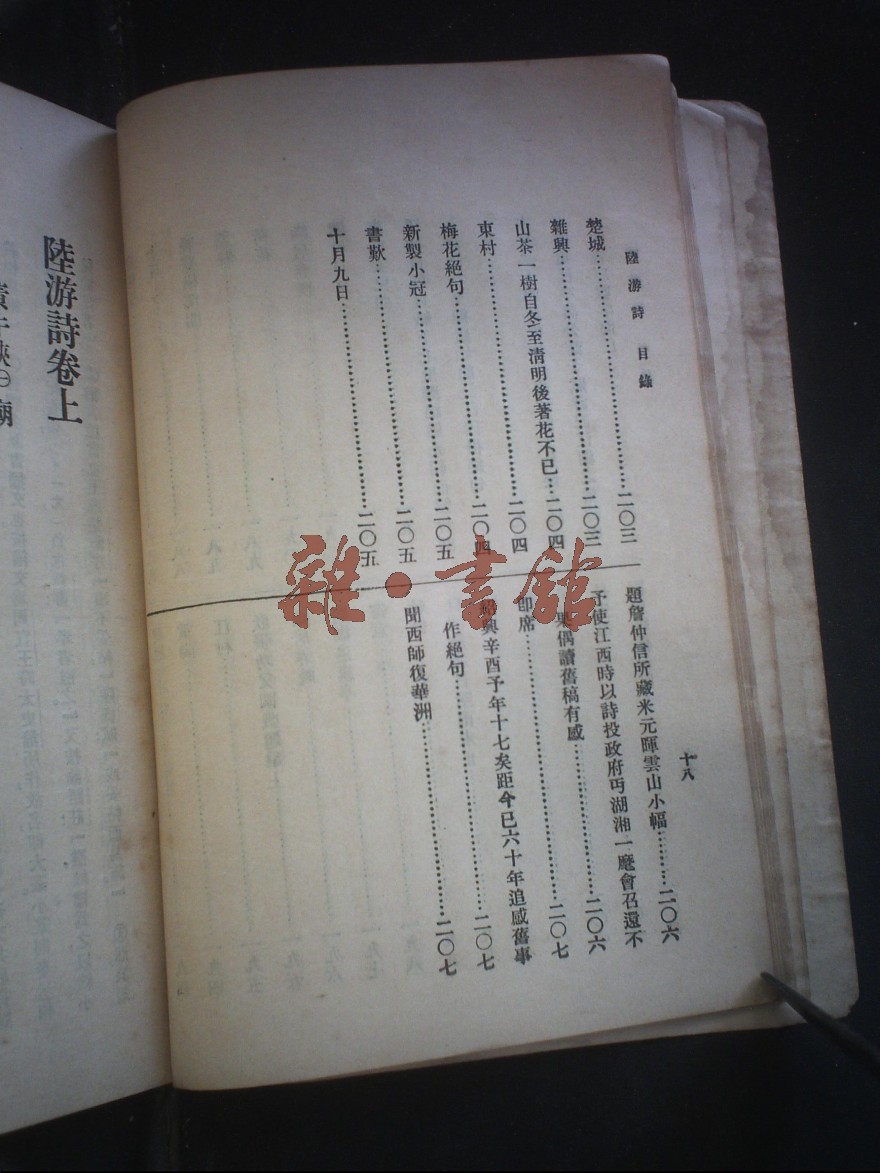 陸游詩 目錄
楚城……二〇三
雜興……二〇三
山茶一樹自冬至清明後著花不已……二〇四
東村……二〇四
梅花絕句……二〇四
新製小冠……二〇五
書歎……二〇五
十月九日……二〇五
題詹仲信所藏米元暉雲山小幅……二〇六
予使江西時以詩投政府丐湖湘一麾會召還不
果偶讀舊稿有感……二〇六
即席……二〇七
紹興辛酉予年十七矣距今已六十年追感舊事
作絕句……二〇七
聞西師復華洲……二〇七
十八
陸游詩卷上
雜·書館